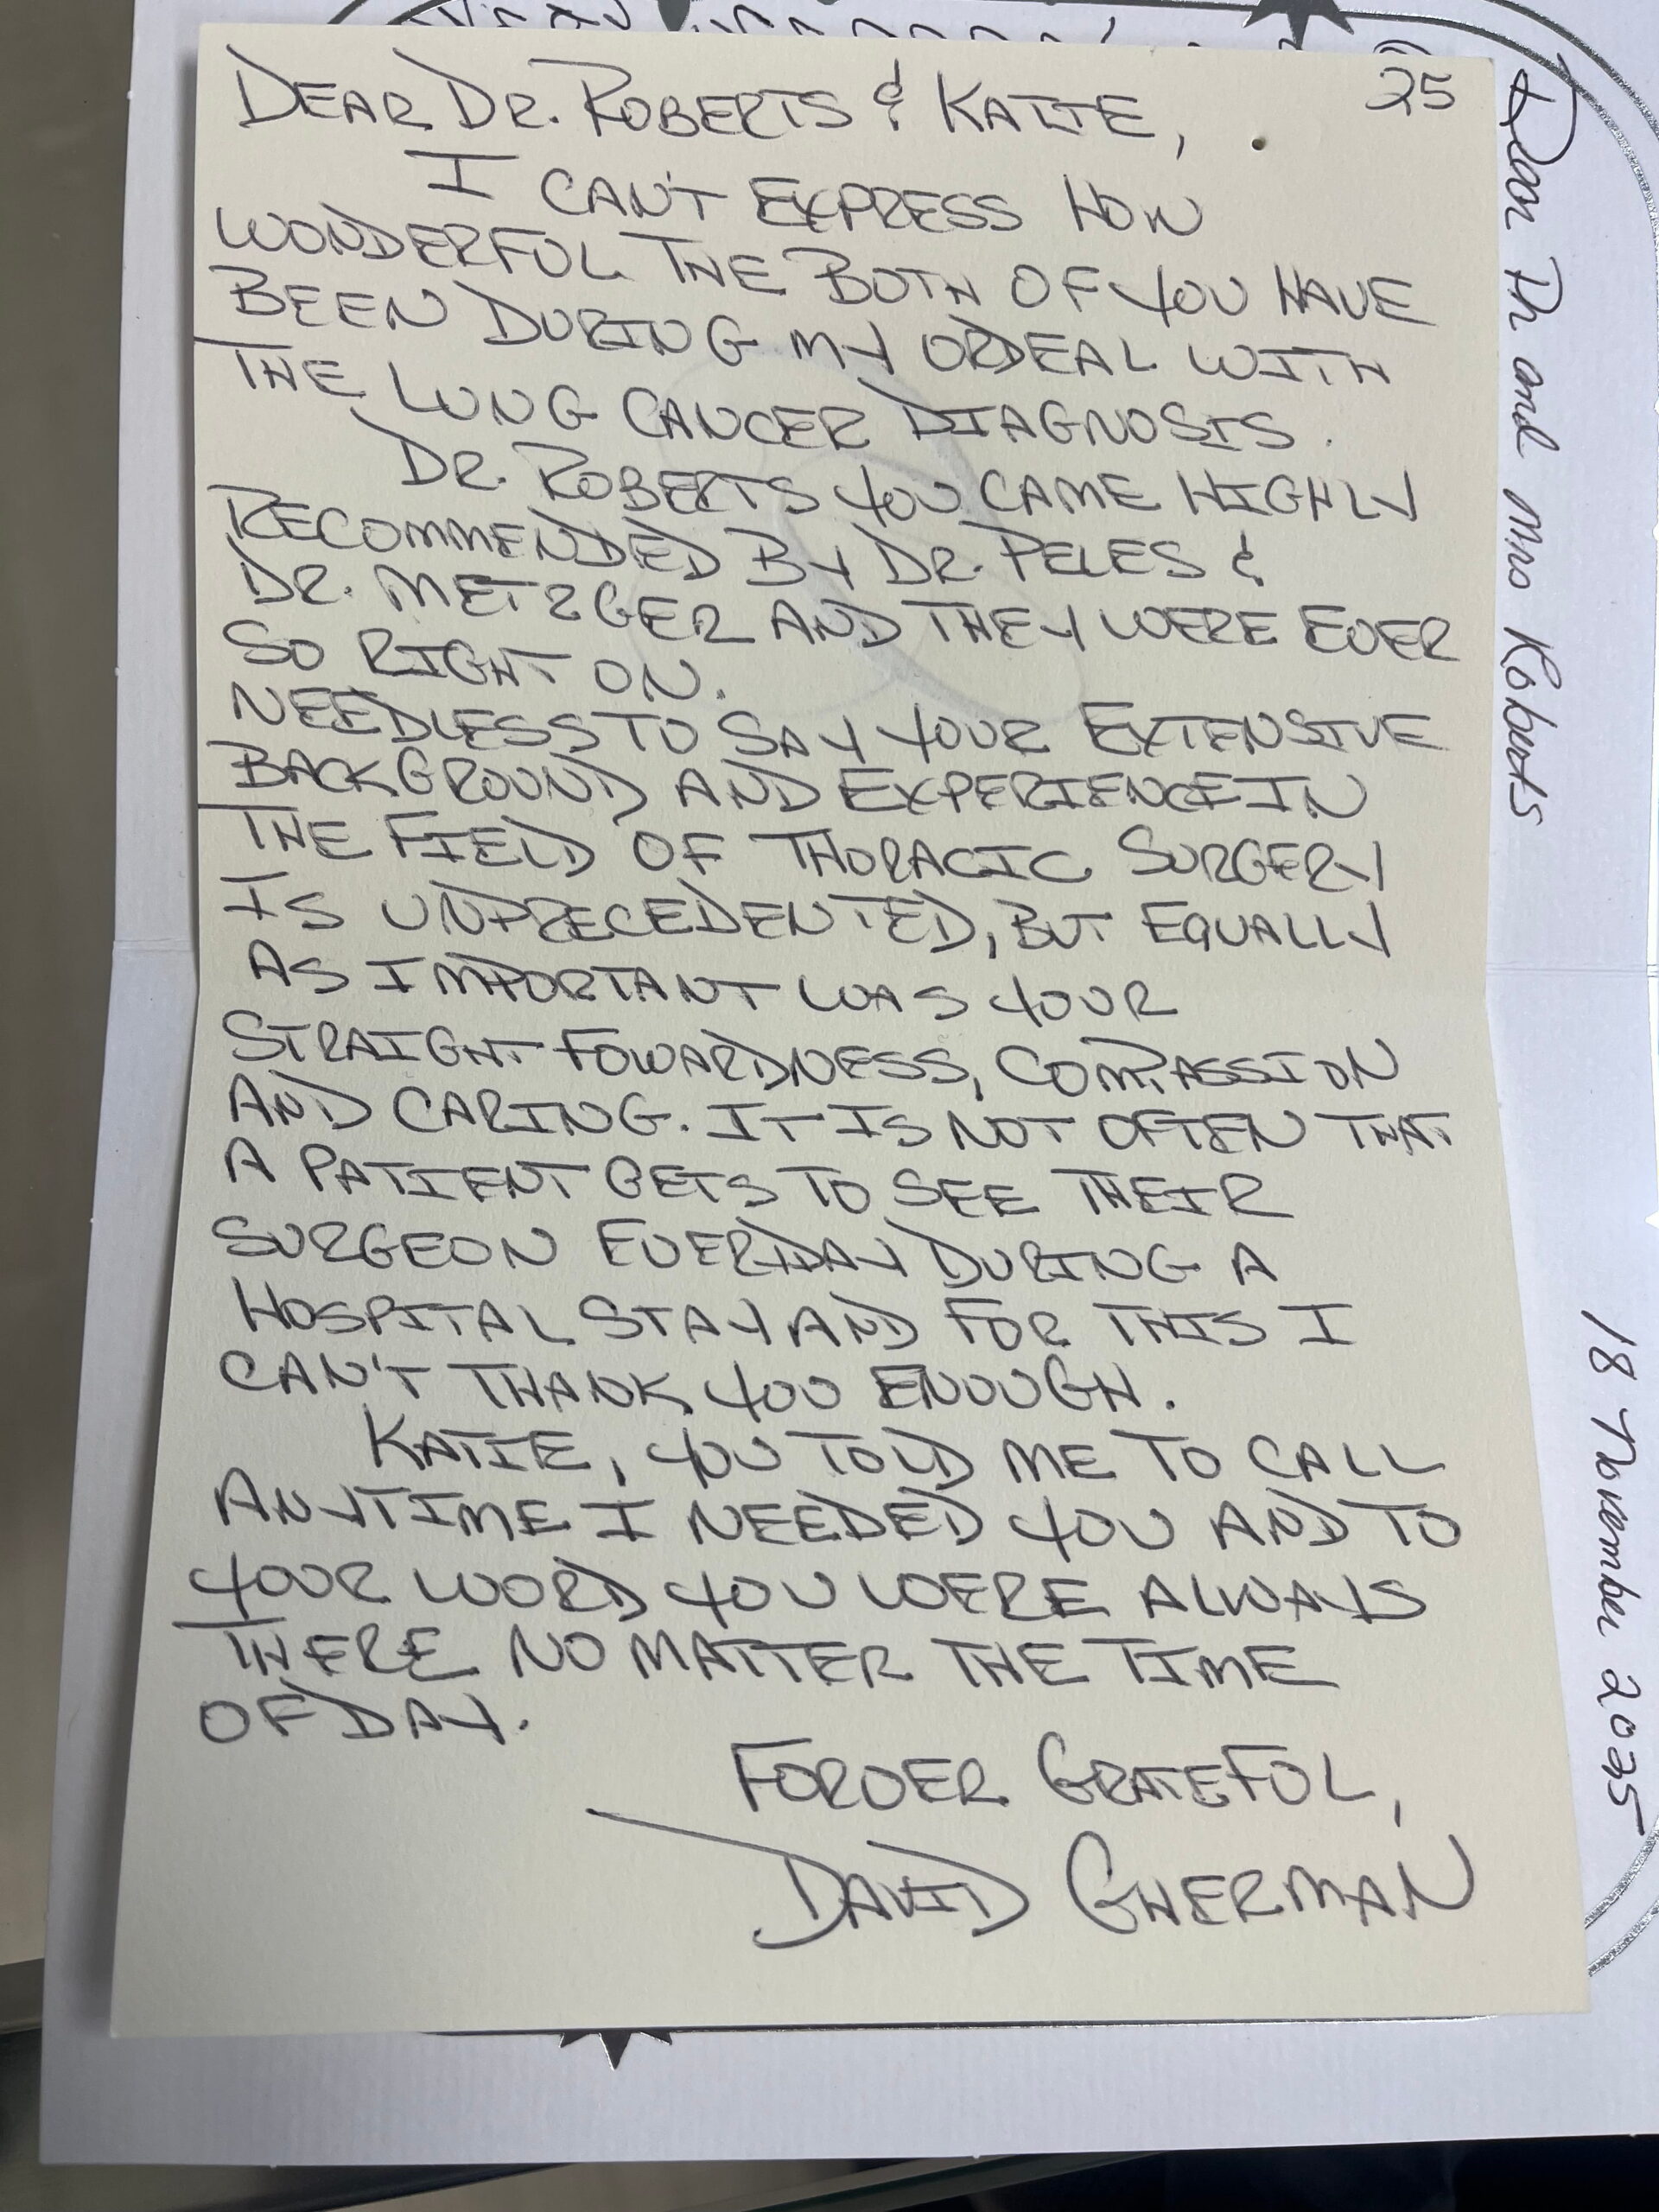 25
DEAR DR. ROBERTS & KATIE,
I CAN'T EXPRESS HOW
WONDERFUL THE BOTH OF YOU HAVE
BEEN DURING MY ORDEAL WITH
THE LUNG CANCER DIAGNOSIS.
DR. ROBERTS YOU CAME HIGHLY
RECOMMENDED BY DR. PELES &
DR. METZGER AND THEY WERE EVER
SO RIGHT ON.
NEEDLESS TO SAY YOUR EXTENSIVE
BACKGROUND AND EXPERIENCE IN
THE FIELD OF THORACIC SURGERY
IS UNPRECEDENTED, BUT EQUALLY
AS IMPORTANT WAS YOUR
STRAIGHT FOWARDNESS, COMPASSION
AND CARING. IT IS NOT OFTEN THAT
A PATIENT GETS TO SEE THEIR
SURGEON EVERYDAY DURING A
HOSPITAL STAY AND FOR THIS I
CAN'T THANK YOU ENOUGH.
KATIE, YOU TOLD ME TO CALL
ANYTIME I NEEDED YOU AND TO
YOUR WORD YOU WERE ALWAYS
THERE NO MATTER THE TIME
OF DAY.
FOREVER GRATEFUL,
DAVID GHERMAN
Dear Dr and Mrs Roberts
18 November 2025